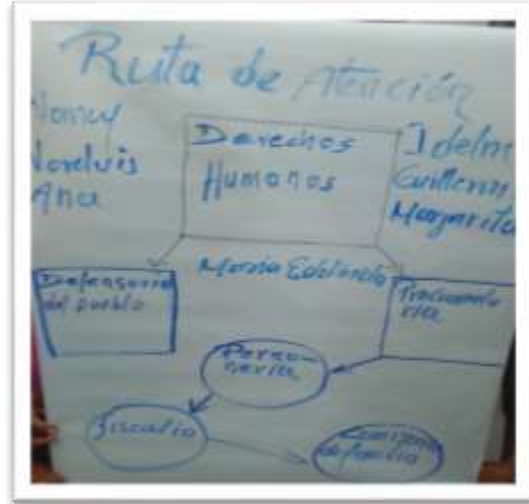 Ruta de Atención
Nancy
Nordvis
Ana
Derechos
Humanos
Idelm
Guillerm
Margarita
Defensoria
del pueblo
Maria
Procuradu
ria
Perso-
neria
fiscalia
Comisaria
de familia